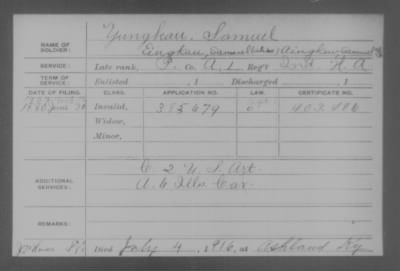 NAME OF SOLDIER: Yungkau, Samuel
Eingkau, Samuel (alias) Aingkau Samuel
SERVICE: Late rank, P. Co. A, 1, Reg't Ind H. A.
TERM OF SERVICE: Enlisted , 1 Discharged , 1
DATE OF FILING. CLASS. APPLICATION NO. LAW. CERTIFICATE NO.
1880 June Invalid, 385479 403.486
Widow,
Minor,
ADDITIONAL SERVICES: C 2 U. S. Art.
A. 6 Ills. Cav.
REMARKS:
Died July 4, 1916, at Ashland Ky